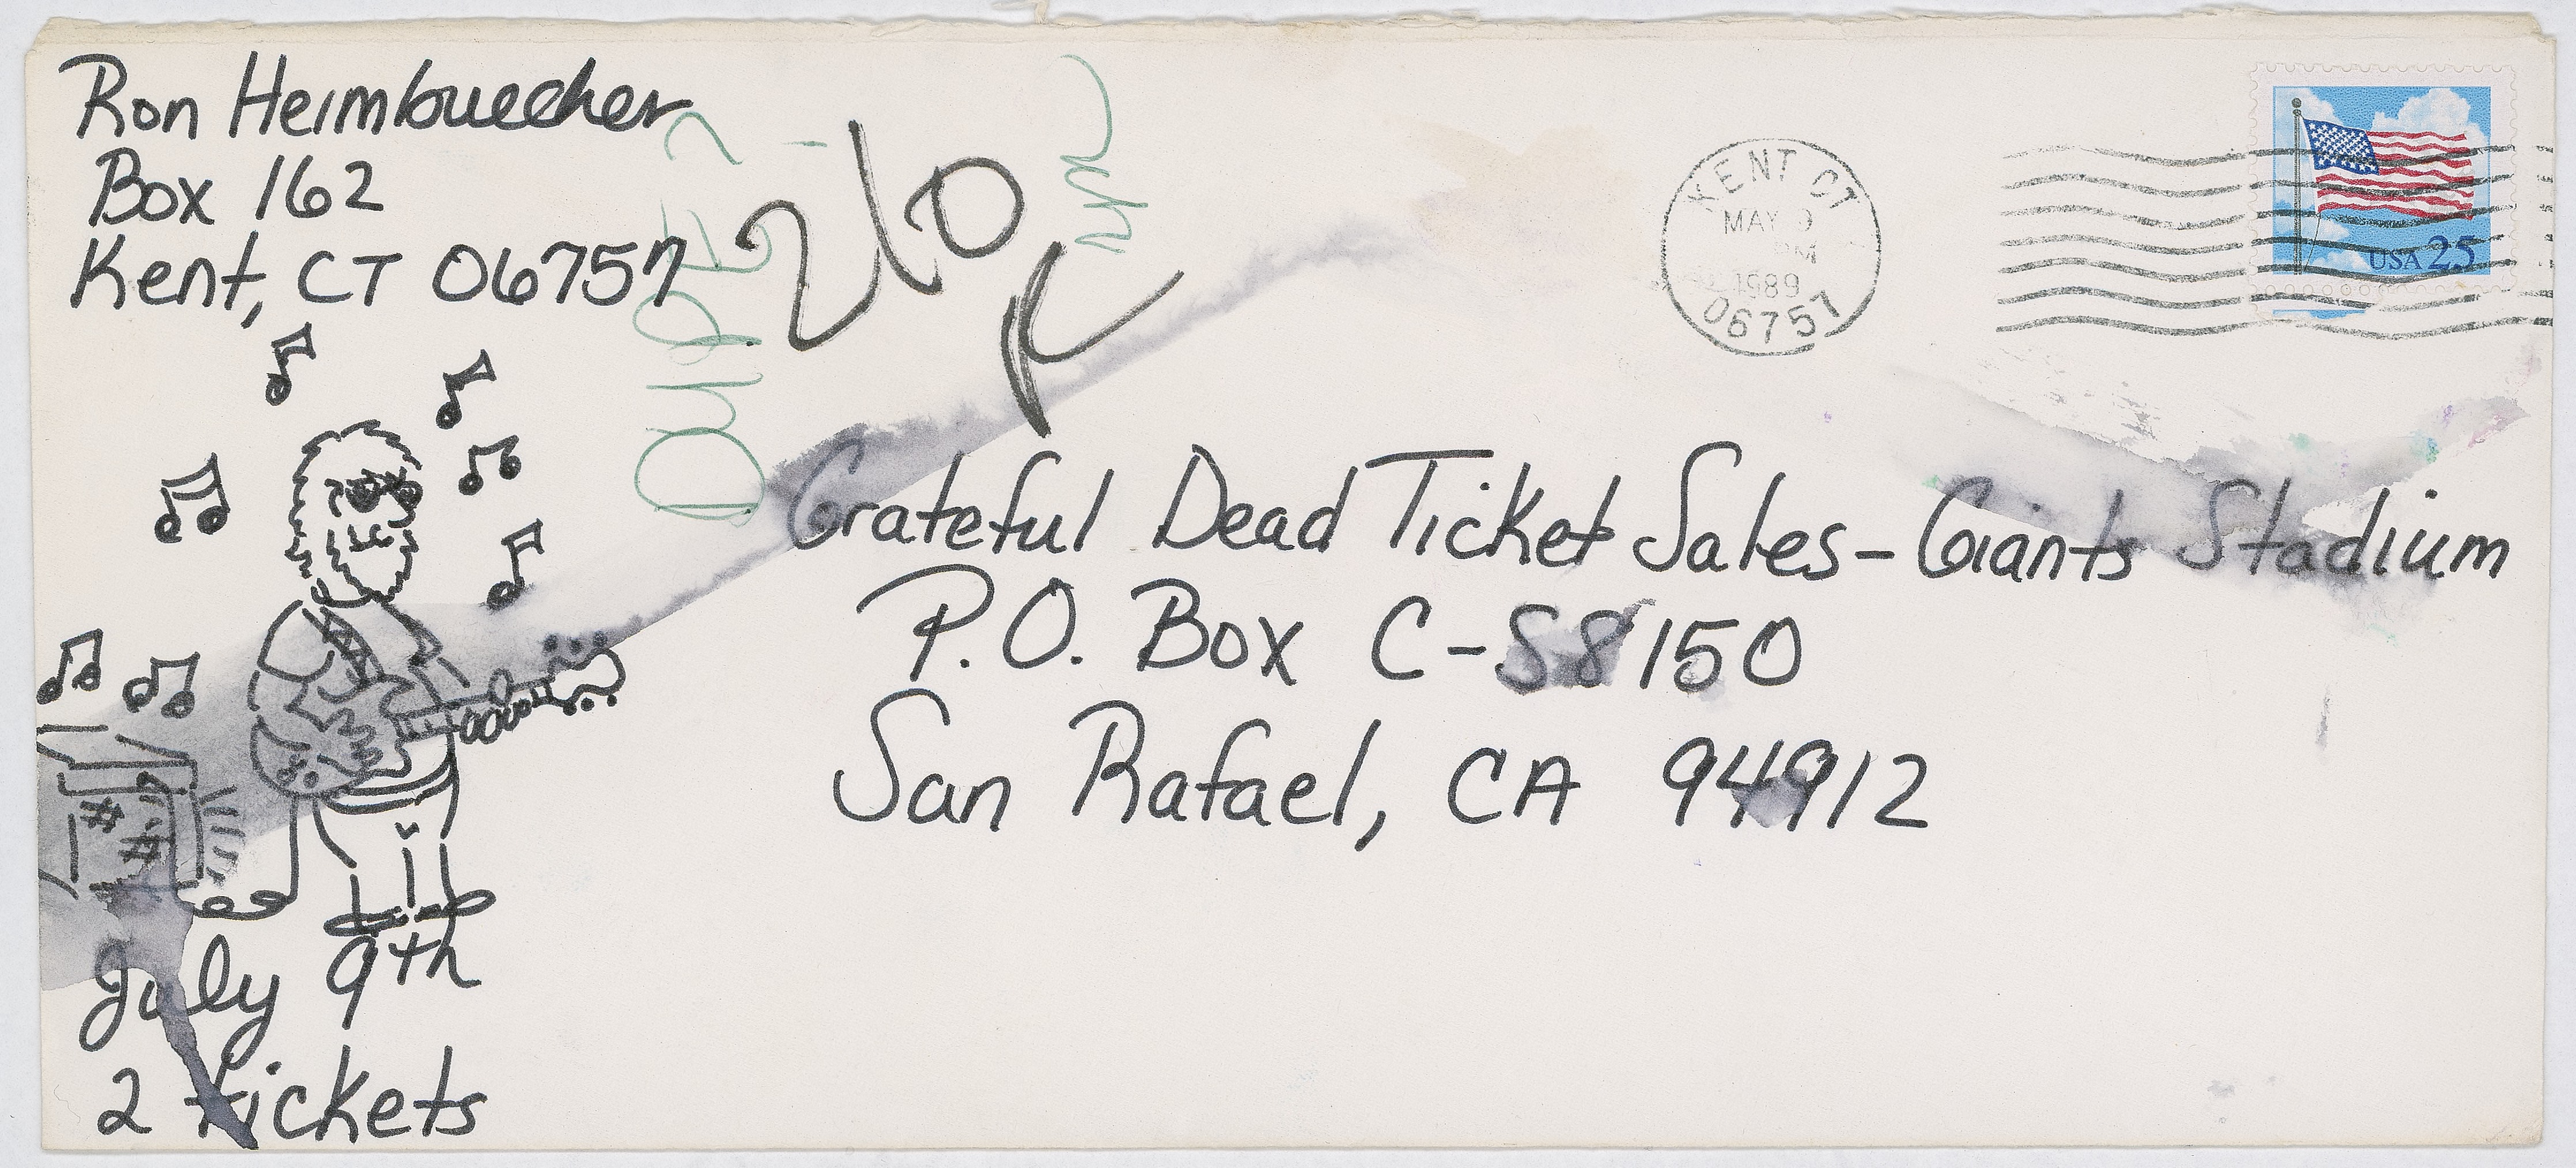 Ron Heimbuecher
Box 162
Kent, CT 06757
KENT CT
MAY 9
PM
1989
06757
USA 25
Grateful Dead Ticket Sales-Giants Stadium
P.O. Box C-S8150
San Rafael, CA 94912
July 9th
2 tickets